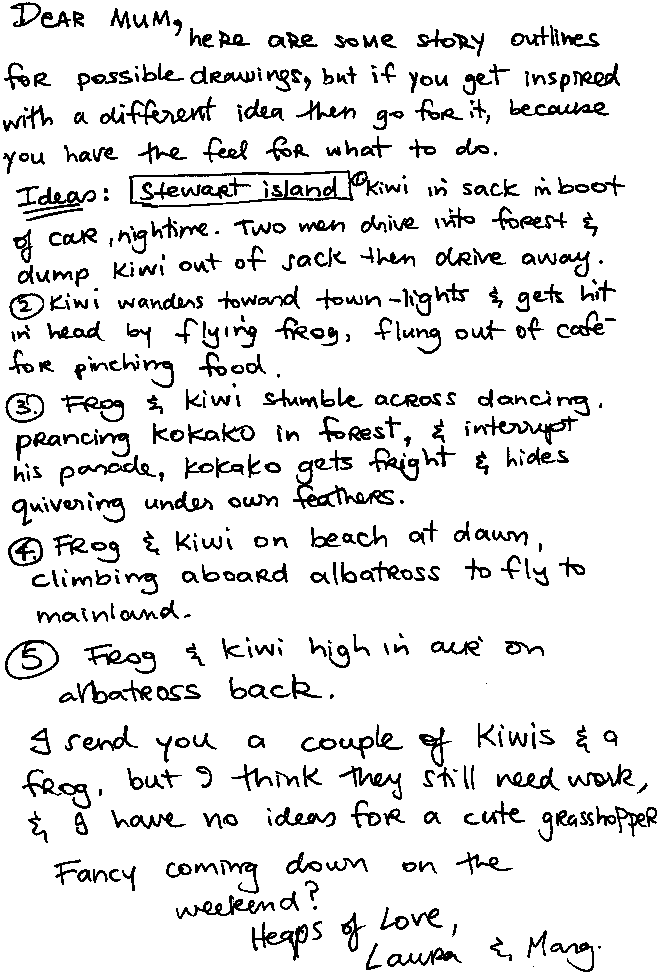 Dear Mum,
here are some story outlines
for possible drawings, but if you get inspired
with a different idea then go for it, because
you have the feel for what to do.
Ideas: Stewart island ① Kiwi in sack in boot
of car, nightime. Two men drive into forest &
dump kiwi out of sack then drive away.
② Kiwi wanders toward town-lights & gets hit
in head by flying frog, flung out of café
for pinching food.
③. Frog & kiwi stumble across dancing,
prancing kokako in forest, & interrupt
his parade, kokako gets fright & hides
quivering under own feathers.
④. Frog & kiwi on beach at dawn,
climbing aboard albatross to fly to
mainland.
⑤ Frog & kiwi high in air on
albatross back.
I send you a couple of Kiwis & a
frog, but I think they still need work,
& I have no ideas for a cute grasshopper
Fancy coming down on the
weekend?
Heaps of Love,
Laura & Marg.